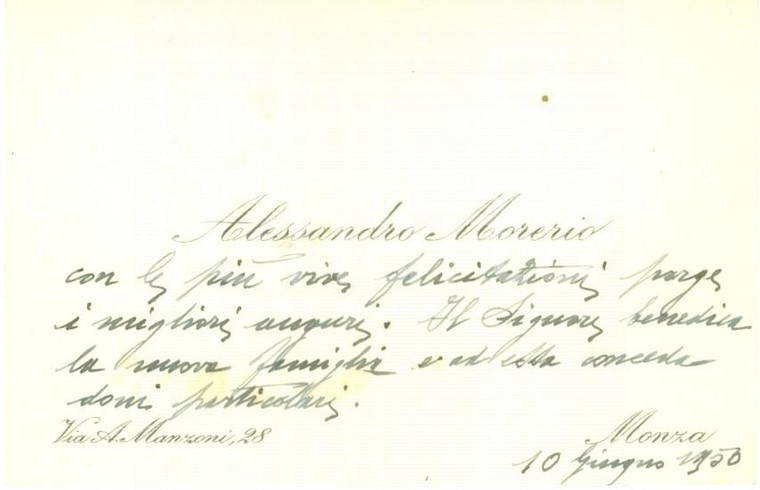 Alessandro Morerio
con le più vive felicitazioni porge
i migliori auguri. Il Signore benedica
la nuova famiglia e ad essa conceda
doni particolari.
Via A. Manzoni, 28
Monza
10 Giugno 1950